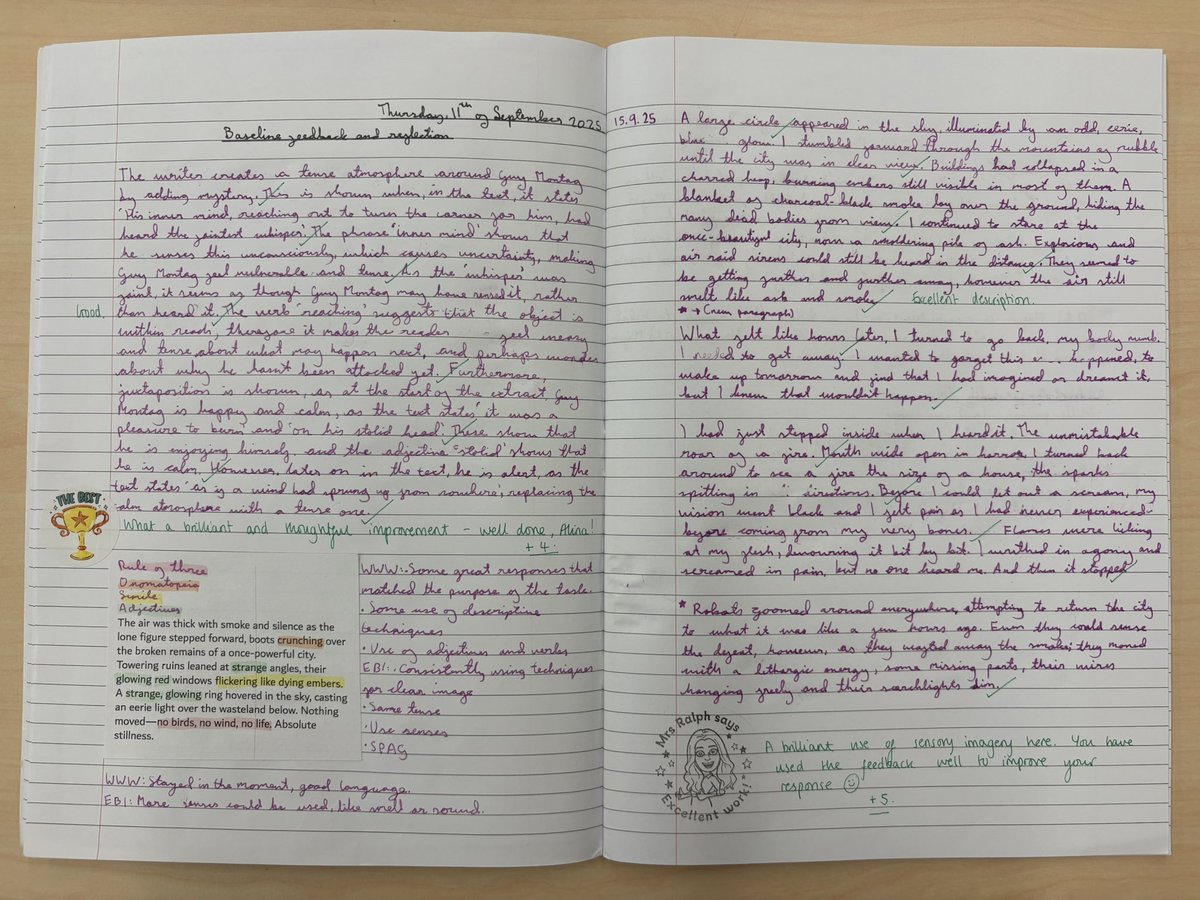 Thursday, 11th of September 2025
Baseline feedback and reflection
The writer creates a tense atmosphere around Guy Montag
by adding mystery. This is shown when, in the text, it states
'His inner mind, reaching out to turn the corner for him, had
heard the faintest whisper'. The phrase 'inner mind' shows that
he senses this unconsciously, which causes uncertainty, making
Guy Montag feel vulnerable and tense. As the 'whisper' was
faint, it seems as though Guy Montag may have sensed it, rather
Good.
than heard it. The verb 'reaching' suggests that the object is
within reach, therefore it makes the reader feel uneasy
and tense, about what may happen next, and perhaps wonder
about why he hasn't been attacked yet. Furthermore,
juxtaposition is shown, as at the start of the extract, Guy
Montag is happy and calm, as the text states 'it was a
pleasure to burn' and 'on his stolid head'. These show that
he is enjoying himself, and the adjective 'stolid' shows that
he is calm. However, later on in the text, he is alert, as the
text states 'as if a wind had sprung up from nowhere', replacing the
calm atmosphere with a tense one.
THE BEST
What a brilliant and thoughtful improvement - well done, Alina!
+4
Rule of three
Onomatopoeia
Simile
Adjectives
The air was thick with smoke and silence as the
lone figure stepped forward, boots crunching over
the broken remains of a once-powerful city.
Towering ruins leaned at strange angles, their
glowing red windows flickering like dying embers.
A strange, glowing ring hovered in the sky, casting
an eerie light over the wasteland below. Nothing
moved—no birds, no wind, no life. Absolute
stillness.
WWW: Some great responses that
matched the purpose of the task.
• Some use of descriptive
techniques
• Use of adjectives and verbs
EBI: Consistently using techniques
for clear image
• Same tense
• Use senses
• SPAG
WWW: Stayed in the moment, good language.
EBI: More senses could be used, like smell or sound.
15.9.25
A large circle appeared in the sky, illuminated by an odd, eerie,
blue glow. I stumbled forward through the mountains of rubble
until the city was in clear view. Buildings had collapsed in a
charred heap, burning embers still visible in most of them. A
blanket of charcoal-black smoke lay over the ground, hiding the
many dead bodies from view. I continued to stare at the
once-beautiful city, now a smoldering pile of ash. Explosions and
air raid sirens could still be heard in the distance. They seemed to
be getting further and further away, however the air still
smelt like ash and smoke. Excellent description.
* → (new paragraph)
What felt like hours later, I turned to go back, my body numb.
I needed to get away. I wanted to forget this happened, to
wake up tomorrow and find that I had imagined or dreamt it,
but I knew that wouldn't happen.
I had just stepped inside when I heard it. The unmistakable
roar of a fire. Mouth wide open in horror, I turned back
around to see a fire the size of a house, the sparks
spitting in directions. Before I could let out a scream, my
vision went black and I felt pain as I had never experienced
before coming from my very bones. Flames were licking
at my flesh, devouring it bit by bit. I writhed in agony and
screamed in pain, but no one heard me. And then it stopped.
* Robots zoomed around everywhere, attempting to return the city
to what it was like a few hours ago. Even they could sense
the defeat, however, as they wafted away the smoke; they moved
with a lethargic energy, some missing parts, their wires
hanging freely and their searchlights dim.
Mrs Ralph says
Excellent work!
A brilliant use of sensory imagery here. You have
used the feedback well to improve your
response
+5